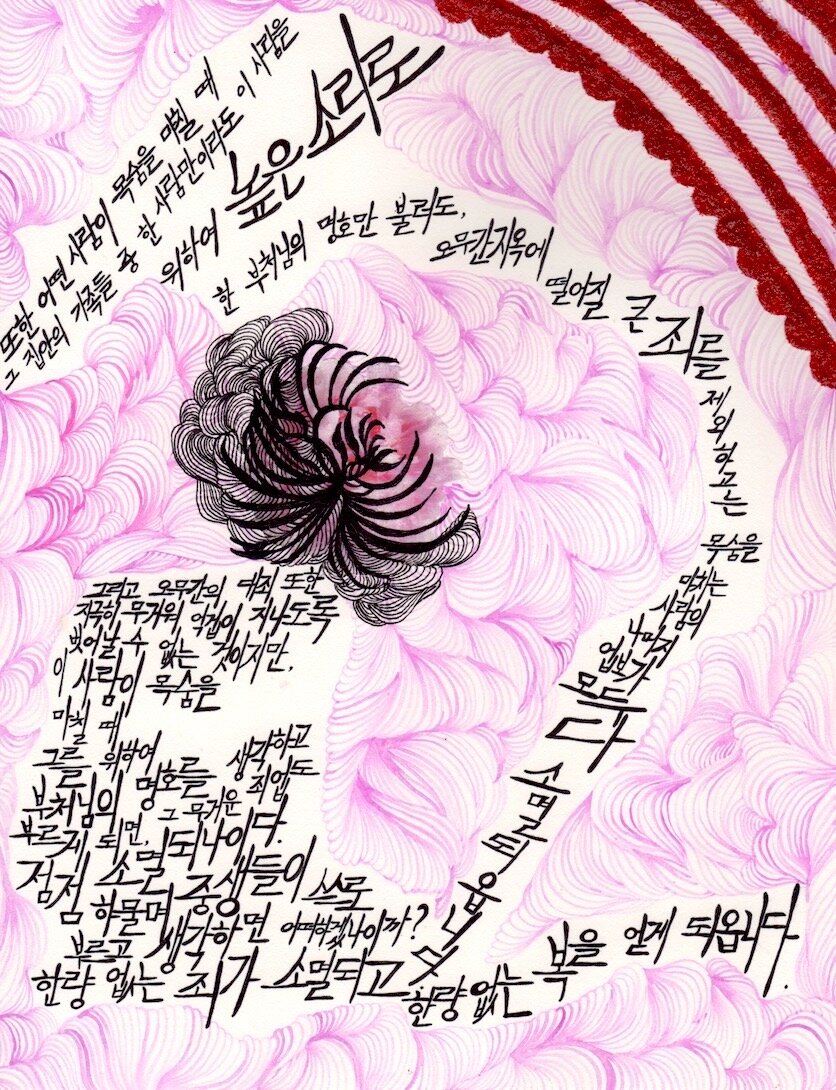 또한 어떤 사람이 목숨을 마칠 때
그 집안의 가족들 중 한 사람만이라도 이 사람을
위하여 높은 소리로
한 부처님의 명호만 불러도,
오무간지옥에
떨어질 큰 죄를
제외하고는
목숨을
마치는
사람의
나머지
업보가
모두 다
소멸되옵니다.
그리고 오무간의 대죄 또한
지극히 무거워 억겁이 지나도록
벗어날 수 없는 것이지만,
이 사람이 목숨을
마칠 때
그를 위하여 생각하고
부처님의 명호를
부르게 되면, 그 무거운 죄업도
점점 소멸되나이다.
하물며 중생들이 스스로
부르고 생각하면 어떠하겠나이까?
한량 없는 죄가 소멸되고 한량 없는 복을 얻게 되옵니다.